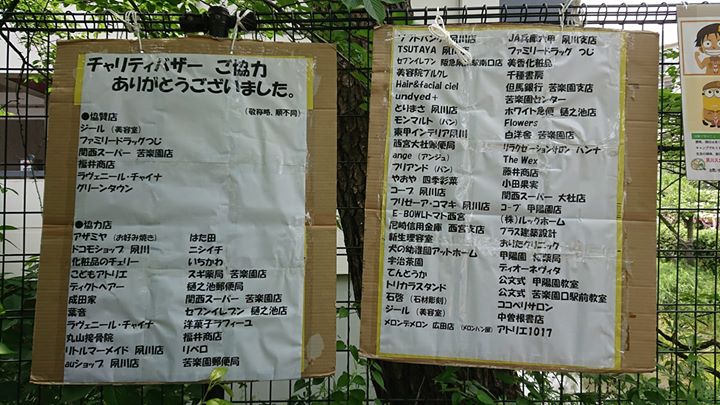 チャリティバザー ご協力
ありがとうございました。
(敬称略、順不同)
●協賛店
ジール (美容室)
ファミリードラッグつじ
関西スーパー 苦楽園店
福井商店
ラヴェニール・チャイナ
グリーンタウン
●協力店
アザミヤ (お好み焼き)
ドコモショップ 夙川
化粧品のチェリー
こどもアトリエ
ディクトヘアー
成田家
葉音
ラヴェニール・チャイナ
丸山接骨院
リトルマーメイド 夙川店
auショップ 夙川店
はた田
ニシイチ
いちかわ
スギ薬局 苦楽園店
樋之池郵便局
関西スーパー 苦楽園店
セブンイレブン 樋之池店
洋菓子ラフィーユ
福井商店
リベロ
苦楽園郵便局
夙川店
TSUTAYA 夙川店
セブンイレブン 阪急夙川駅南口店
美容院アルクレ
Hair&facial ciel
undyed+
とりまさ 夙川店
モンマルト (パン)
東甲インテリア夙川
西宮大社郵便局
ange (アンジュ)
ブリアンド (パン)
やおや 四季彩菜
コープ 夙川店
フリゼーア・コマキ 夙川店
E-BOWLトマト西宮
尼崎信用金庫 西宮支店
新生理容室
犬の幼稚園アットホーム
宇治茶園
てんとうか
トリカラスタンド
石啓 (石材彫刻)
ジール (美容室)
メロンデメロン 広田店 (メロンパン屋)
JA兵庫六甲 夙川支店
ファミリードラッグ つじ
美香化粧品
千種書房
但馬銀行 苦楽園支店
苦楽園センター
ホワイト急便 樋之池店
Flowers
白洋舎 苦楽園店
リラクゼーションサロン バンナ
The Wex
藤井商店
小田果実
関西スーパー 大社店
コープ 甲陽園店
(株)ルックホーム
プラス建築設計
おりたクリニック
甲陽園 郵便局
ディオーネヴィタ
公文式 甲陽園教室
公文式 苦楽園口駅前教室
ココペリサロン
中曽根書店
アトリエ1017